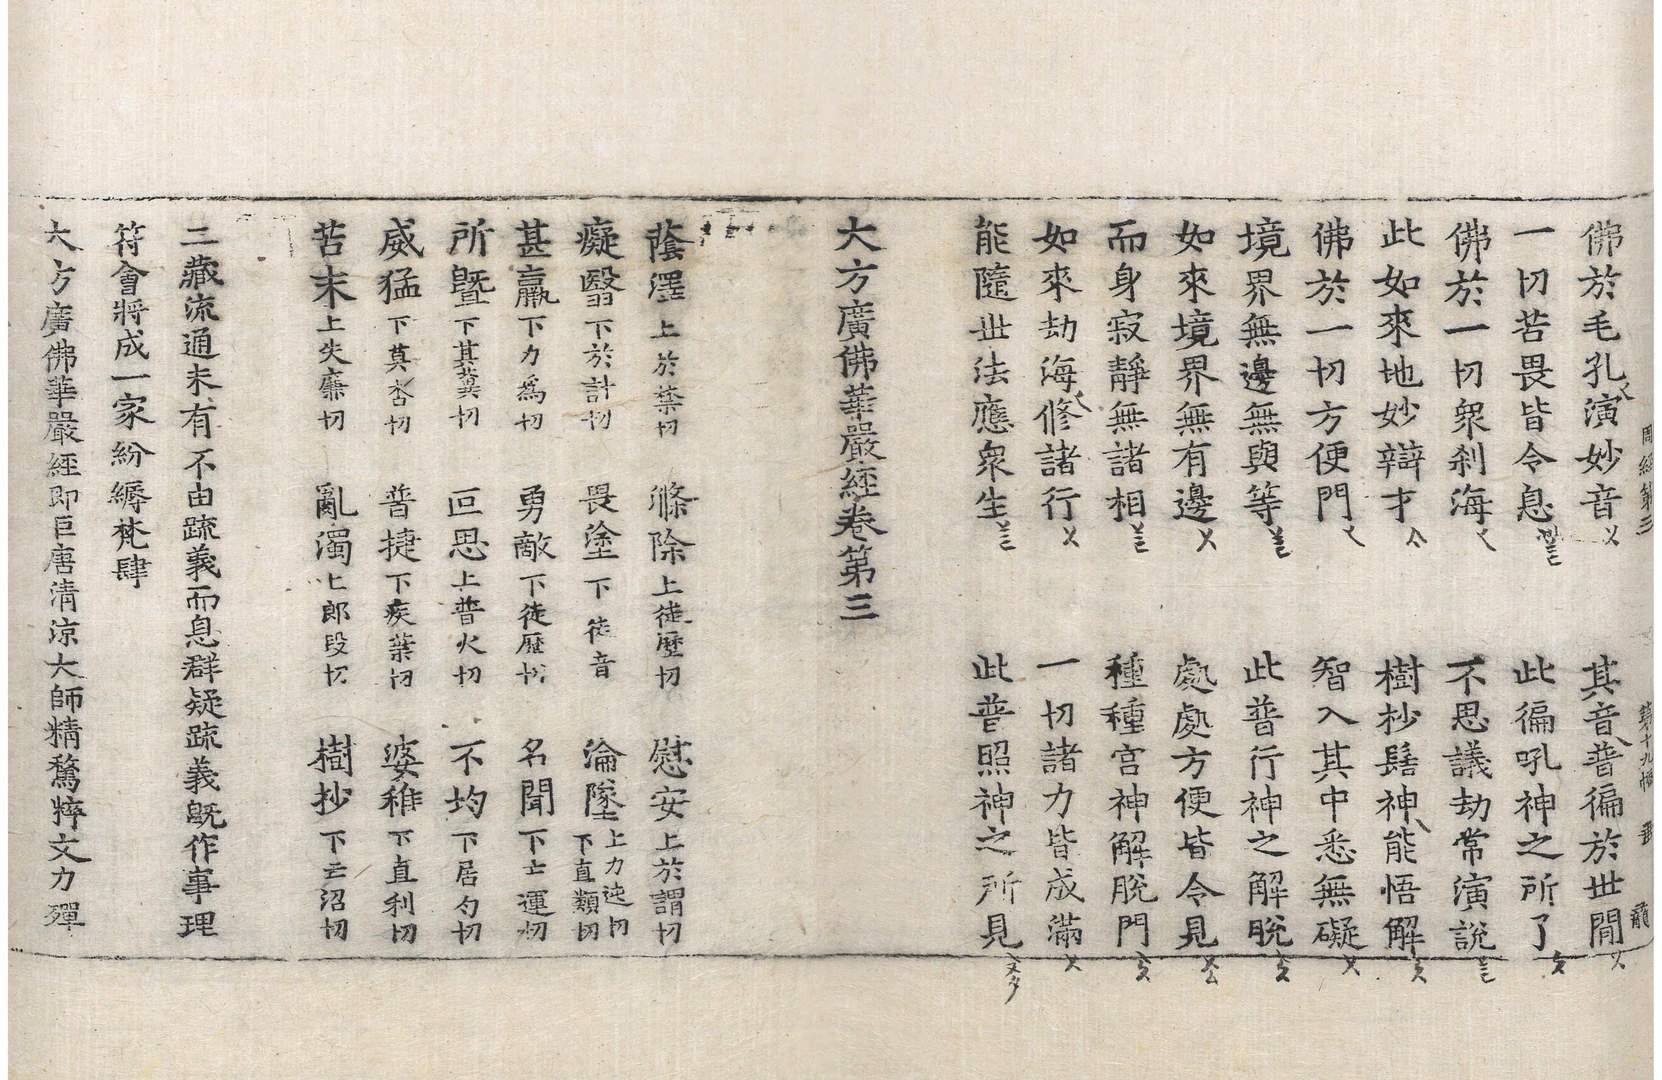 周經第三 第十九幅
佛於毛孔演妙音 其音普徧於世間
一切苦畏皆令息 此徧吼神之所了
佛於一切衆刹海 不思議劫常演說
此如來地妙辯才 樹杪髻神能悟解
佛於一切方便門 智入其中悉無礙
境界無邊無與等 此普行神之解脫
如來境界無有邊 處處方便皆令見
而身寂靜無諸相 種種宮神解脫門
如來劫海修諸行 一切諸力皆成滿
能隨世法應衆生 此普照神之所見
大方廣佛華嚴經卷第三
蔭澤上於禁切 滌除上徒歷切 慰安上於謂切
癡翳下於計切 畏塗下徒音 淪墜上力迍切下直類切
甚羸下力爲切 勇敵下徒歷切 名聞下亡運切
所曁下其冀切 叵思上普火切 不均下居勻切
威猛下莫杏切 普捷下疾葉切 婆稚下直利切
苫末上失廉切 亂濁上郎段切 樹杪下亡沼切
三藏流通未有不由疏義而息群疑疏義旣作事理
符會將成一家紛縟梵肆
大方廣佛華嚴經即巨唐清涼大師精騖粹文力殫